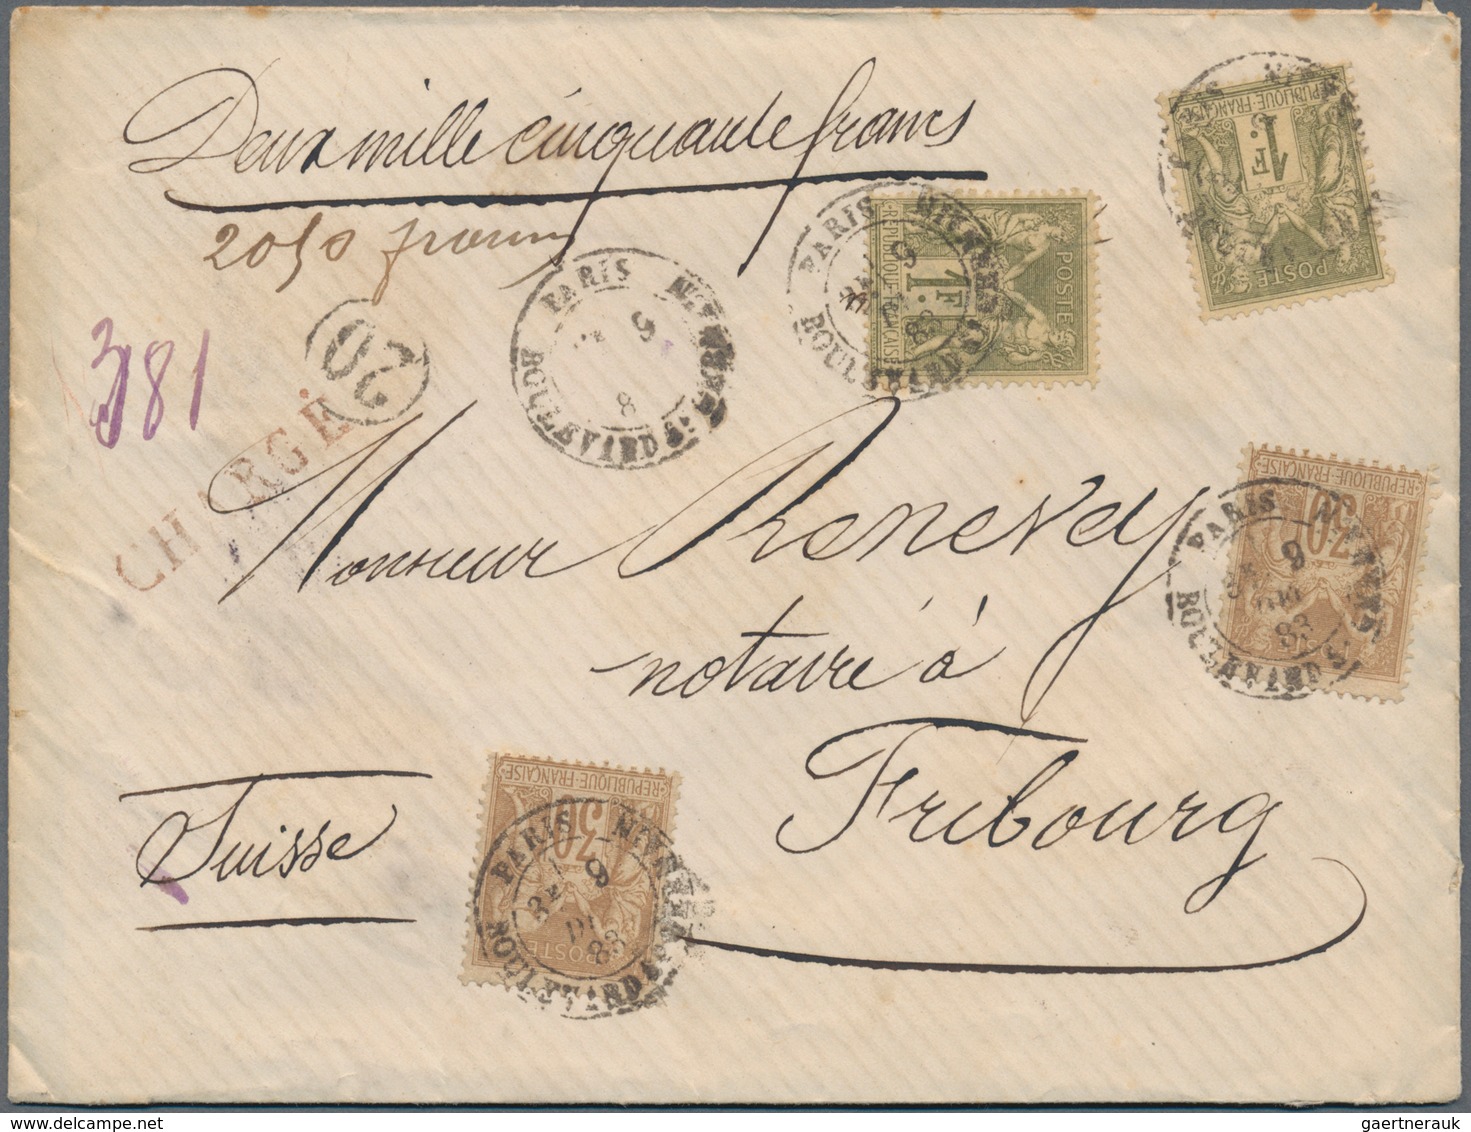 Deux mille cinquante francs
2050 francs
381
CHARGÉ
20
PARIS
9
8
BOULEVARD St
PARIS
9
83
BOULEVARD St
1F
REPUBLIQUE FRANCAISE
POSTE
1F
REPUBLIQUE·FRANCAISE
POSTE
Monsieur Renevey
notaire à
Fribourg
Suisse
REPUBLIQUE FRANCAISE
30
PARIS
9
83
BOULEVARD St
REPUBLIQUE·FRANCAISE
30
POSTE
PARIS
9
83
BOULEVARD St
gaertnerauk